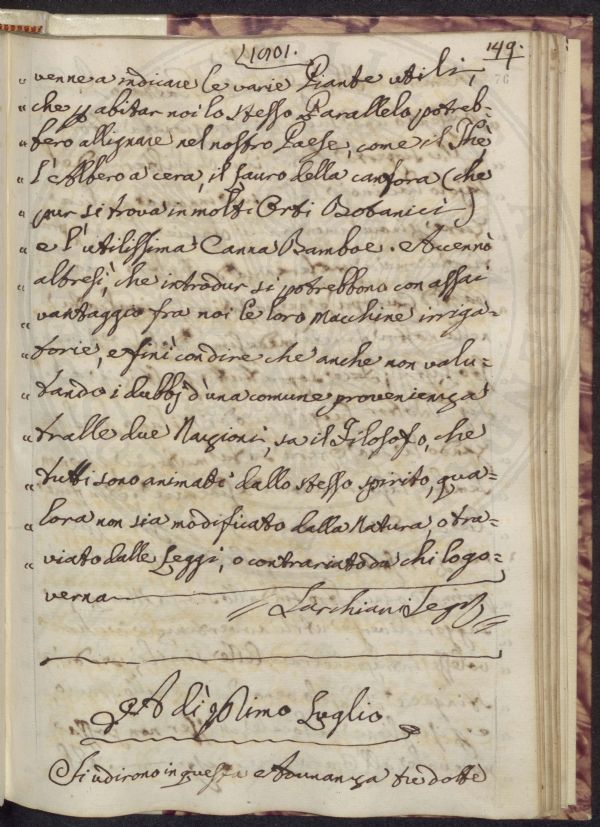 1801. 149.
„ venne a indicare le varie Piante utili,
„ che p abitar noi lo stesso Parallelo, potreb=
„ bero allignare nel nostro Paese, come il Thè
„ l'Albero a cera, il Lauro della canfora (che
„ pur si trova in molti Orti Botanici)
„ e l'utilissima Canna Bamboe. Accennò
„ altresì, che introdur si potrebbono con assai
„ vantaggio fra noi le loro Macchine irriga=
„ torie, e finì con dire che anche non valu=
„ tando i dubbj d'una comune provenienza
„ tralle due Nazioni, sa il Filosofo, che
„ tutti sono animati dallo stesso spirito, qua=
„ lora non sia modificato dalla Natura, o tra=
„ viato dalle Leggi, o contrariato da chi lo go=
verna
Sarchiani Seg.
A dì primo Luglio
Si udirono in questa Adunanza tre dotte